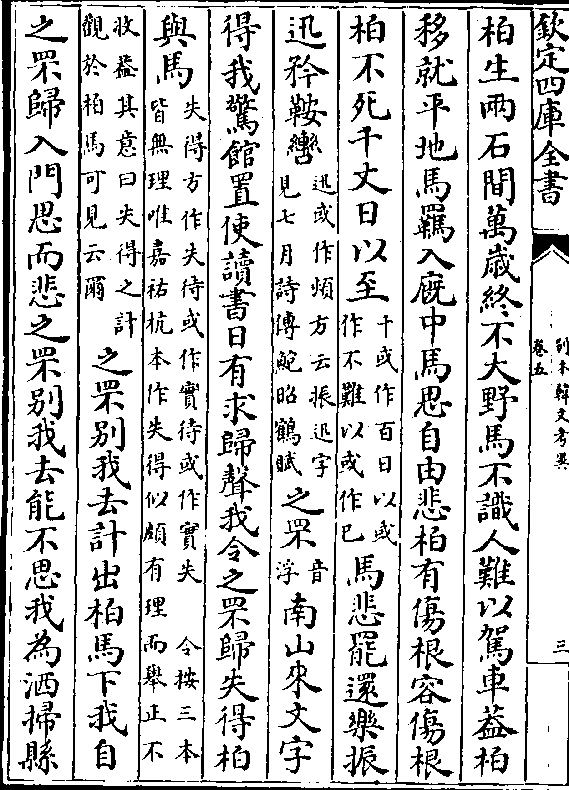 欽定四庫全書
別本韓文考異
卷五
三
柏生兩石間萬歲終不大野馬不識人難以駕車葢柏
移就平地馬羈入廐中馬思自由悲柏有傷根容傷根
柏不死千丈日以至十或作百日以或作不難以或作已馬悲罷還樂振
迅矜鞍轡迅或作煩方云振迅字見七月詩傳鮑昭鶴賦之罘音浮南山來文字
得我驚館置使讀書日有求歸聲我令之罘歸失得柏
與馬失得方作失待或作實待或作實失 今按三本皆無理唯嘉祐杭本作失得似頗有理而舉正不
收葢其意曰失得之計觀於柏馬可見云爾之罘別我去計出柏馬下我自
之罘歸入門思而悲之罘別我去能不思我為洒掃縣